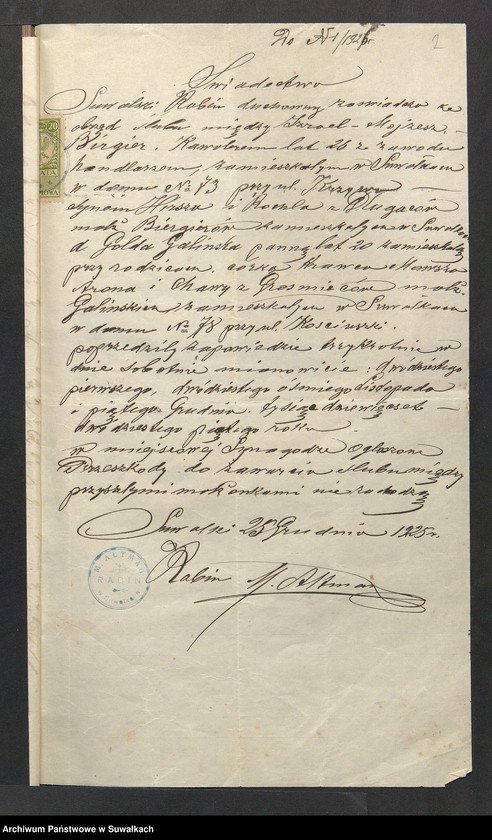 Do № 1/1926 r
2
Swiadectwo
Suwalski Rabin duchowny zawiadcza że
obrząd slubu między Izrael-Mojżesz
Bergier, Kawalerem lat 26 z zawodu
handlarzem, zamieszkałym w Suwałkach
w domu № 73 przy ul.
synem Hirsza i Rochla z Długaczów
małż. Biergierów zamieszkałych w Suwałkach
a Golda Galinska panną lat 20 zamieszkałą
przy rodzicach, córką Krawca Mowsza
Arona i Chawy z małż.
Galinskich zamieszkałych w Suwałkach
w domu № 78 przy ul. Kosciuszki.
poprzedziły zapowiedzie trzykrotnie w
dnie sobotnie mianowicie: dwódziestego
pierwszego, dwódziestego osmiego listopada
i piątego Grudnia, tysiąc dziewięcset
dwódziestego piątego roku
w miejscowej Synagodze ogłoszone
Przeszkody do zawarcia slubu między
przyszłymi małżonkami nie zachodzą
Suwałki 28 Grudnia 1925 r.
Rabin M. Altman
RABIN
20
Archiwum Państwowe w Suwałkach